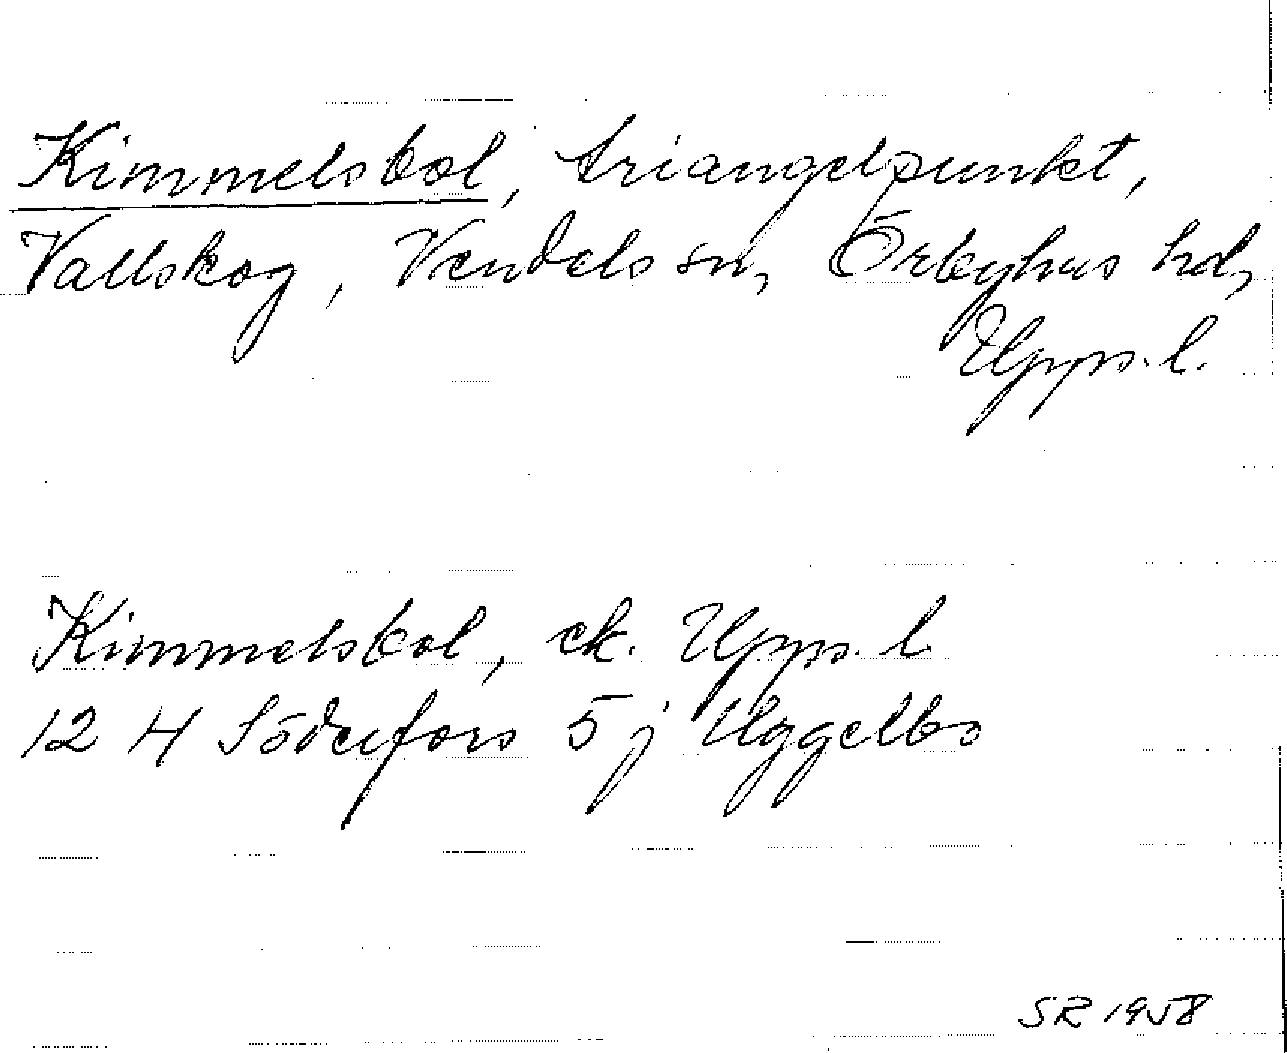 Kimmelsbol, triangelpunkt,
Vallskog, Vendels sn, Örbyhus hd,
Upps. l.
Kimmelsbol, ek. Upps. l.
12 H Söderfors 5 j Uggelbo
SR 1958